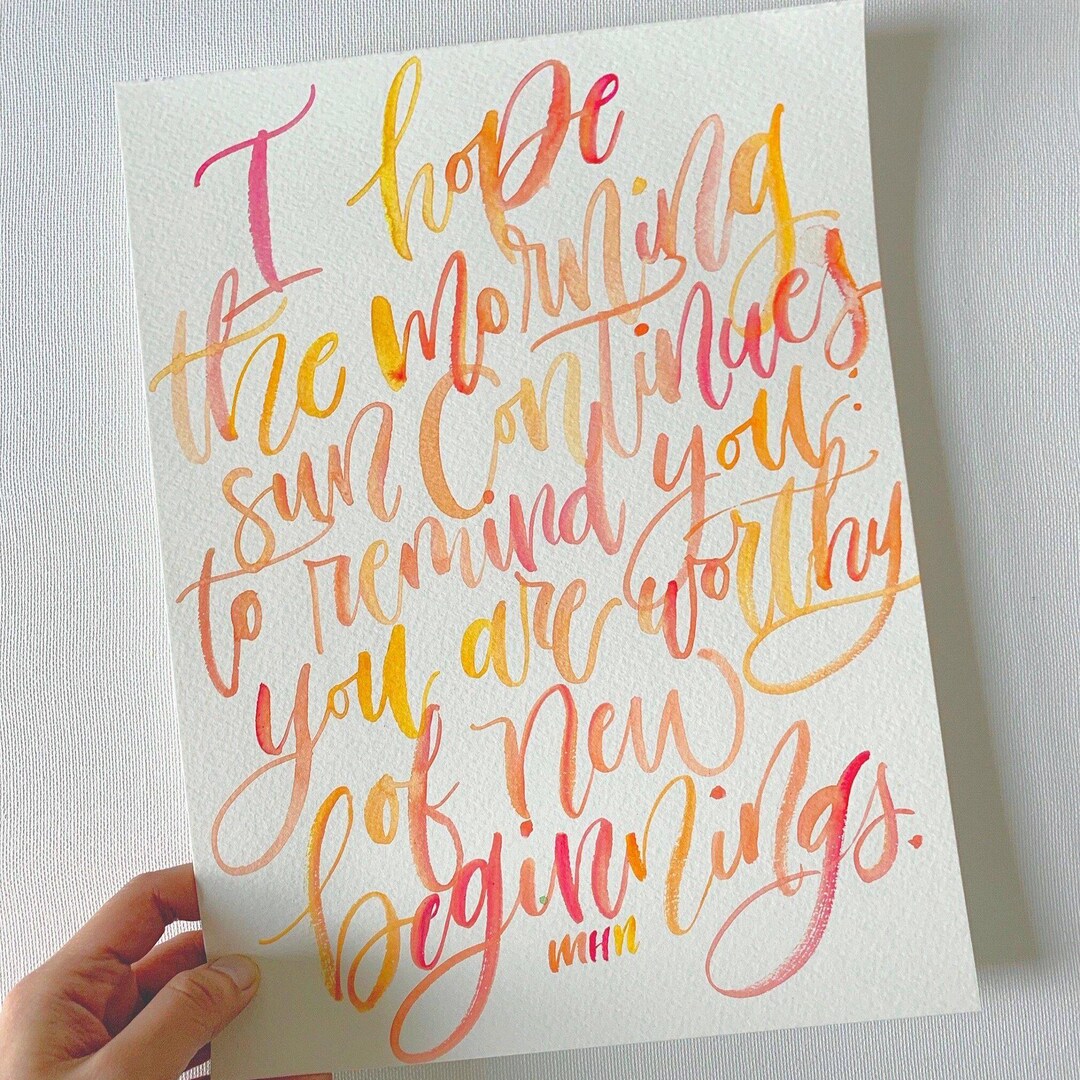 I hope
the morning
sun continues
to remind you:
you are worthy
of new
beginnings.
MHN